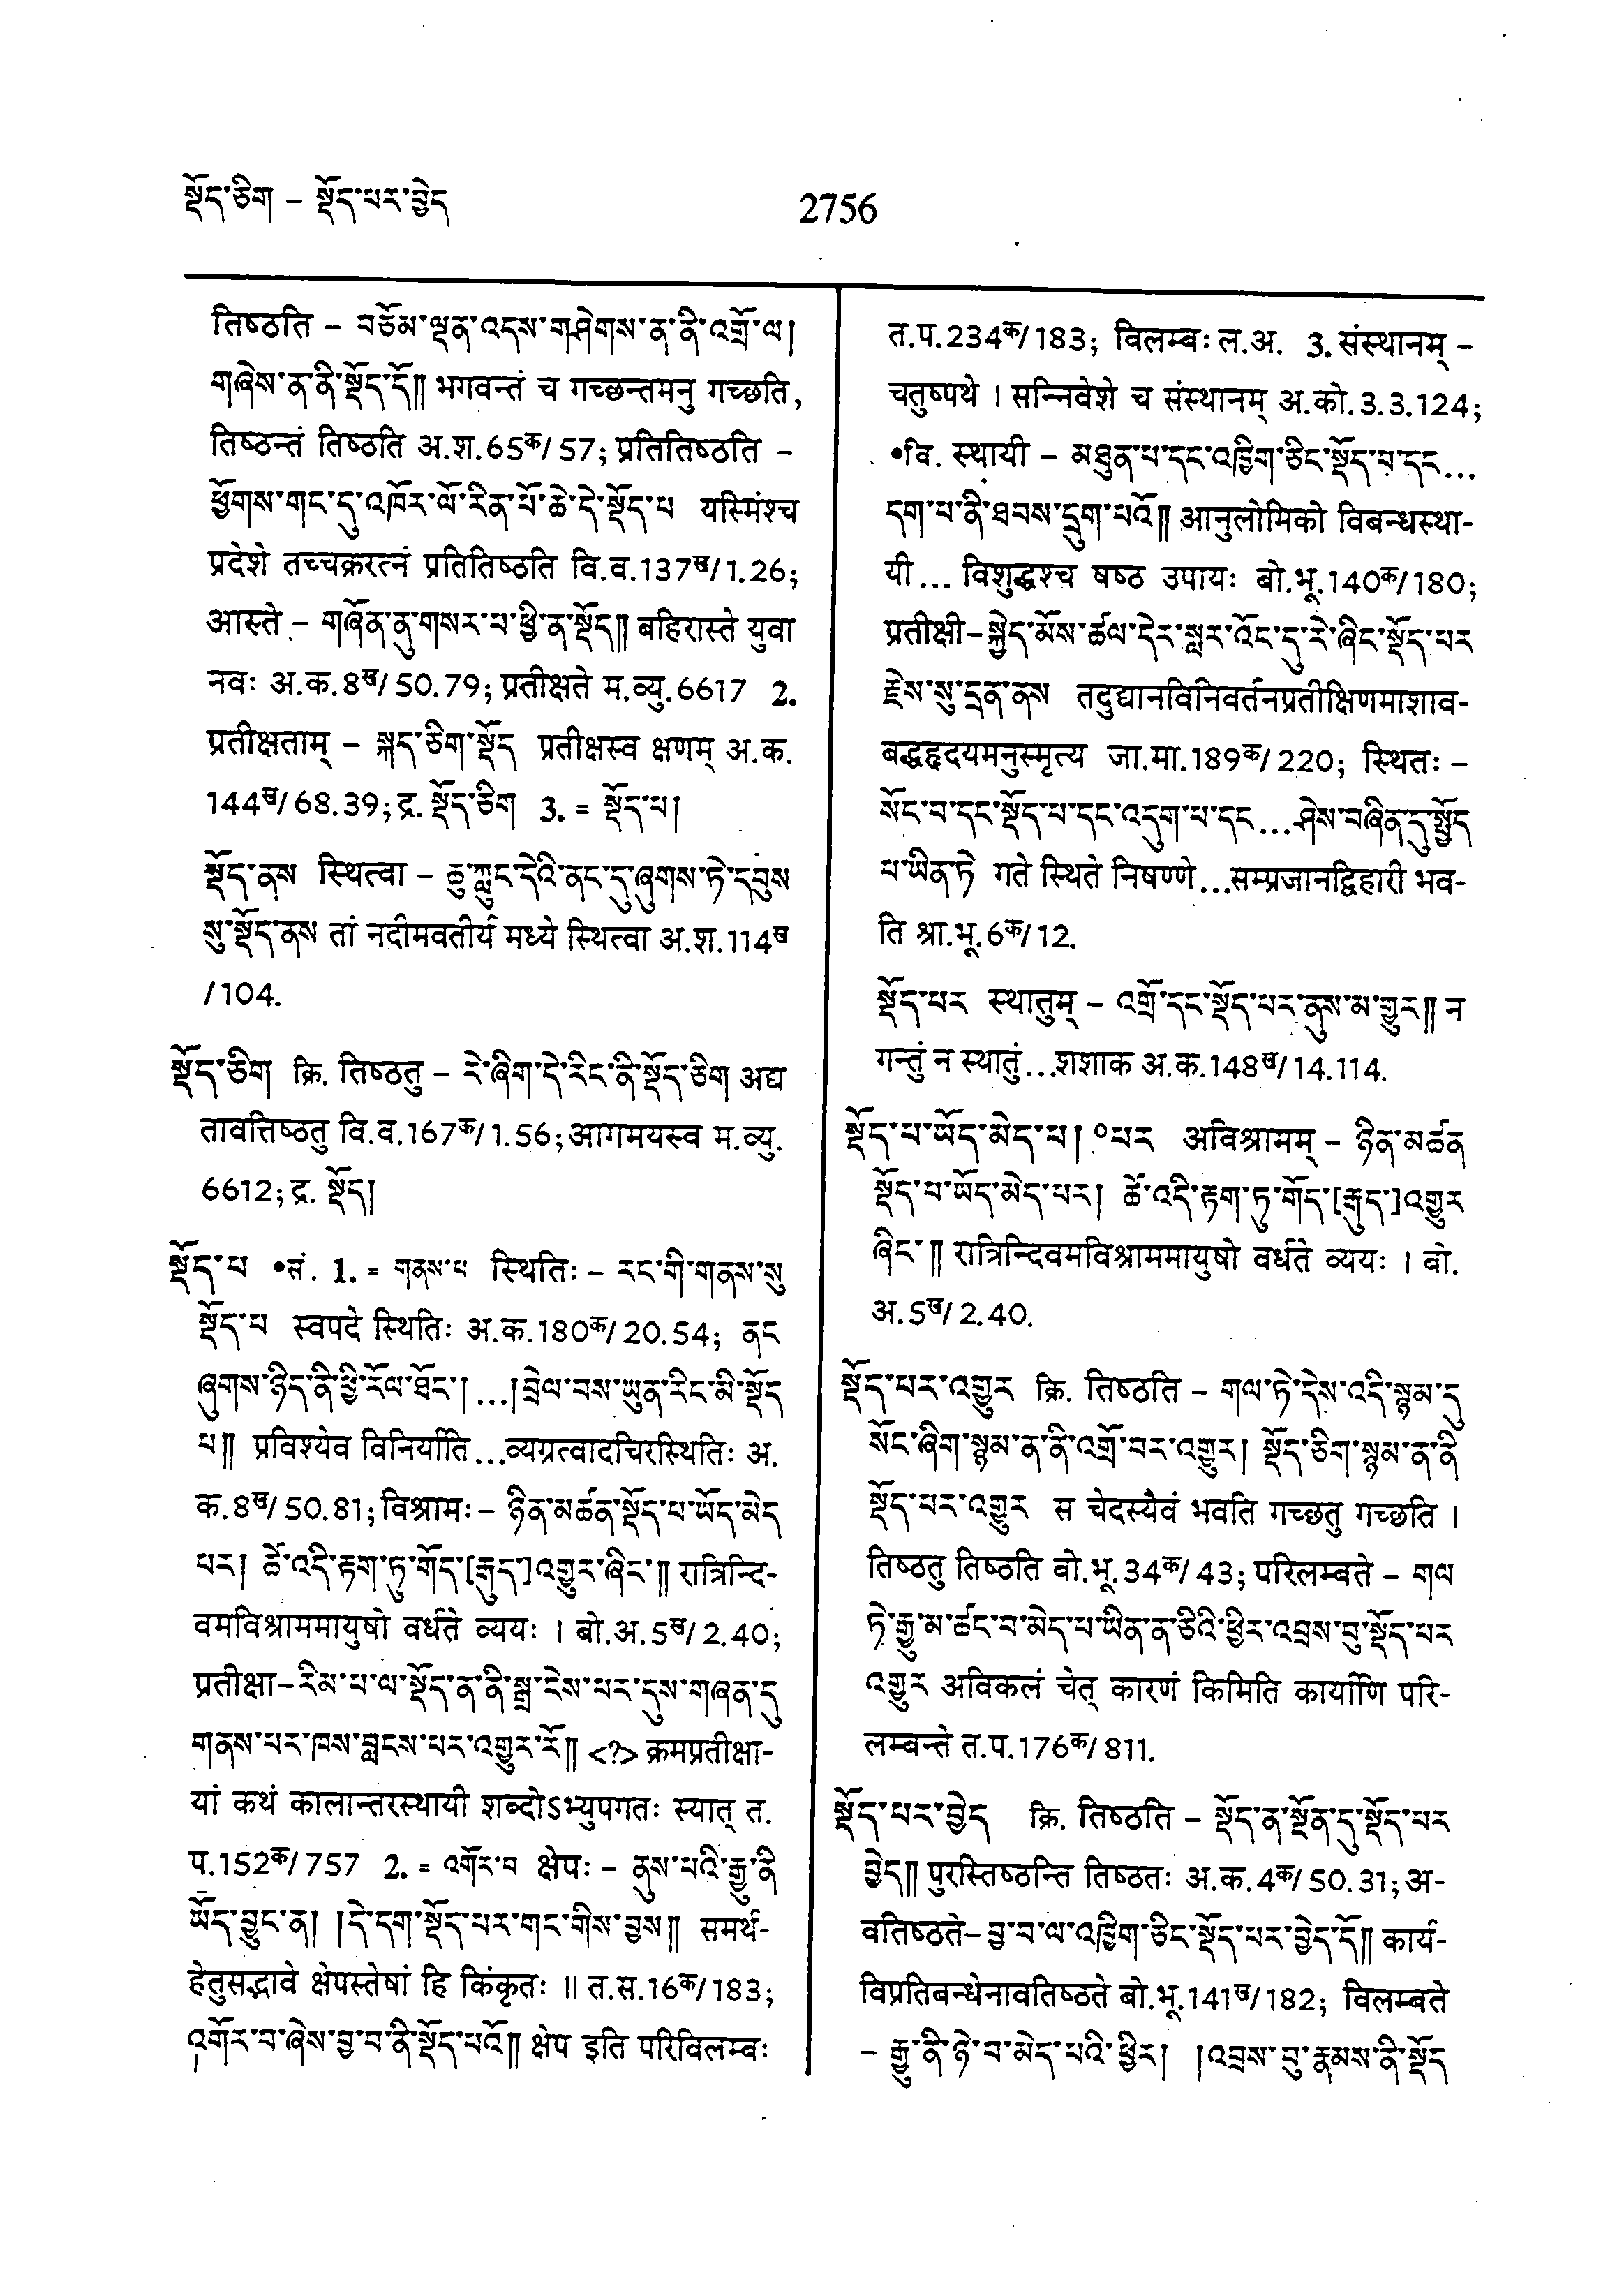 སྡོད་ཅིག – སྡོད་པར་བྱེད
2756
तिष्ठति – བཅོམ་ལྡན་འདས་གཤེགས་ན་ནི་འགྲོ་ལ།
གཞེས་ན་ནི་སྡོད་དོ།། भगवन्तं च गच्छन्तमनु गच्छति,
तिष्ठन्तं तिष्ठति अ.श.65क/57; प्रतितिष्ठति –
ཕྱོགས་གང་དུ་འཁོར་ལོ་རིན་པོ་ཆེ་དེ་སྡོད་པ यस्मिंश्च
प्रदेशे तच्चक्ररत्नं प्रतितिष्ठति वि.व.137ख/1.26;
आस्ते – གཞོན་ནུ་གསར་པ་ཕྱི་ན་སྡོད།། बहिरास्ते युवा
नवः अ.क.8ख/50.79; प्रतीक्षते म.व्यु.6617 2.
प्रतीक्षताम् – སྐད་ཅིག་སྡོད प्रतीक्षस्व क्षणम् अ.क.
144ख/68.39; द्र. སྡོད་ཅིག 3. = སྡོད་པ།
སྡོད་ནས स्थित्वा – ཆུ་ཀླུང་དེའི་ནང་དུ་ཞུགས་ཏེ་དབུས
སུ་སྡོད་ནས तां नदीमवतीर्य मध्ये स्थित्वा अ.श.114ख
/104.
སྡོད་ཅིག क्रि. तिष्ठतु – རེ་ཞིག་དེ་རིང་ནི་སྡོད་ཅིག अद्य
तावत्तिष्ठतु वि.व.167क/1.56; आगमयस्व म.व्यु.
6612; द्र. སྡོད།
སྡོད་པ •सं. 1. = གནས་པ स्थितिः – རང་གི་གནས་སུ
སྡོད་པ स्वपदे स्थितिः अ.क.180क/20.54; ནང
ཞུགས་ཉིད་ནི་ཕྱི་རོལ་ཐོང་། ...། བྲེལ་བས་ཡུན་རིང་མི་སྡོད
པ།། प्रविश्येव विनिर्याति...व्यग्रत्वादचिरस्थितिः अ.
क.8ख/50.81; विश्रामः – ཉིན་མཚན་སྡོད་པ་ཡོད་མེད
པར། ཚེ་འདི་རྟག་ཏུ་གོད་[རྒུད་]འགྱུར་ཞིང་།། रात्रिन्दि-
वमविश्राममायुषो वर्धते व्ययः । बो.अ.5ख/2.40;
प्रतीक्षा – རིམ་པ་ལ་སྡོད་ན་ནི་སྒྲ་ངེས་པར་དུས་གཞན་དུ
གནས་པར་ཁས་བླངས་པར་འགྱུར་རོ།། <?> क्रमप्रतीक्षा-
यां कथं कालान्तरस्थायी शब्दोऽभ्युपगतः स्यात् त.
प.152क/757 2. = འགོར་བ क्षेपः – ནུས་པའི་རྒྱུ་ནི
ཡོད་བྱུང་ན། །དེ་དག་སྡོད་པར་གང་གིས་བྱས།། समर्थ-
हेतुसद्भावे क्षेपस्तेषां हि किंकृतः ॥ त.स.16क/183;
འགོར་བ་ཞེས་བྱ་བ་ནི་སྡོད་པའོ།། क्षेप इति परिविलम्बः
त.प.234क/183; विलम्बः ल.अ. 3. संस्थानम् –
चतुष्पथे । सन्निवेशे च संस्थानम् अ.को.3.3.124;
•वि. स्थायी – མཐུན་པ་དང་འཁྲིག་ཅིང་སྡོད་པ་དང...
དག་པ་ནི་ཐབས་དྲུག་པའོ།། आनुलोमिको विबन्धस्था-
यी... विशुद्धश्च षष्ठ उपायः बो.भू.140क/180;
प्रतीक्षी – སྐྱེད་མོས་ཚལ་དེར་སླར་འོང་དུ་རེ་ཞིང་སྡོད་པར
རྗེས་སུ་དྲན་ནས तदुद्यानविनिवर्तनप्रतीक्षिणमाशाव-
बद्धहृदयमनुस्मृत्य जा.मा.189क/220; स्थितः –
སོང་བ་དང་སྡོད་པ་དང་འདུག་པ་དང...ཤེས་བཞིན་དུ་སྤྱོད
པ་ཡིན་ཏེ गते स्थिते निषण्णे...सम्प्रजानद्विहारी भव-
ति श्रा.भू.6क/12.
སྡོད་པར स्थातुम् – འགྲོ་དང་སྡོད་པར་ནུས་མ་གྱུར།། न
गन्तुं न स्थातुं...शशाक अ.क.148ख/14.114.
སྡོད་པ་ཡོད་མེད་པ། °པར अविश्रामम् – ཉིན་མཚན
སྡོད་པ་ཡོད་མེད་པར། ཚེ་འདི་རྟག་ཏུ་གོད་[རྒུད་]འགྱུར
ཞིང་།། रात्रिन्दिवमविश्राममायुषो वर्धते व्ययः । बो.
अ.5ख/2.40.
སྡོད་པར་འགྱུར क्रि. तिष्ठति – གལ་ཏེ་དེས་འདི་སྙམ་དུ
སོང་ཞིག་སྙམ་ན་ནི་འགྲོ་བར་འགྱུར། སྡོད་ཅིག་སྙམ་ན་ནི
སྡོད་པར་འགྱུར स चेदस्यैवं भवति गच्छतु गच्छति ।
तिष्ठतु तिष्ठति बो.भू.34क/43; परिलम्बते – གལ
ཏེ་རྒྱུ་མ་ཚང་བ་མེད་པ་ཡིན་ན་ཅིའི་ཕྱིར་འབྲས་བུ་སྡོད་པར
འགྱུར अविकलं चेत् कारणं किमिति कार्याणि परि-
लम्बन्ते त.प.176क/811.
སྡོད་པར་བྱེད क्रि. तिष्ठति – སྡོད་ན་སྔོན་དུ་སྡོད་པར
བྱེད།། पुरस्तिष्ठन्ति तिष्ठतः अ.क.4क/50.31; अ-
वतिष्ठते – བྱ་བ་ལ་འཁྲིག་ཅིང་སྡོད་པར་བྱེད་དོ།། कार्य-
विप्रतिबन्धेनावतिष्ठते बो.भू.141ख/182; विलम्बते
– རྒྱུ་ནི་ཉེ་བ་མེད་པའི་ཕྱིར། །འབྲས་བུ་རྣམས་ནི་སྡོད